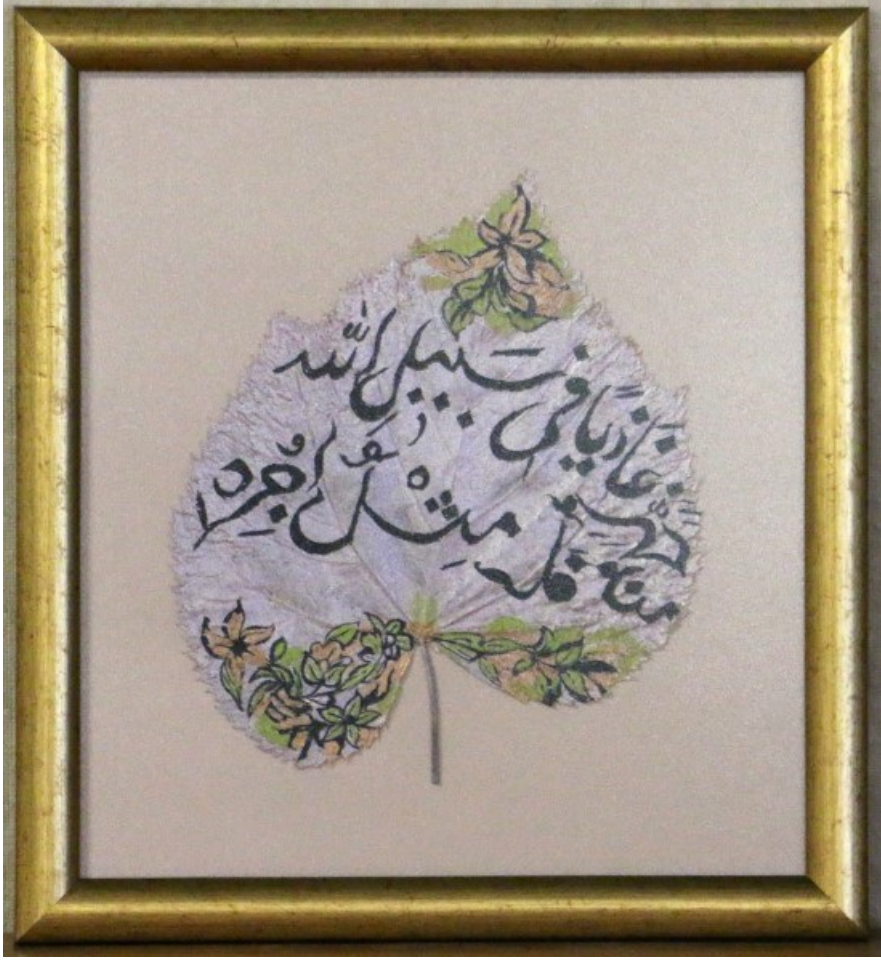 من جهّز غازياً في سبيل الله
فله مثل اجره